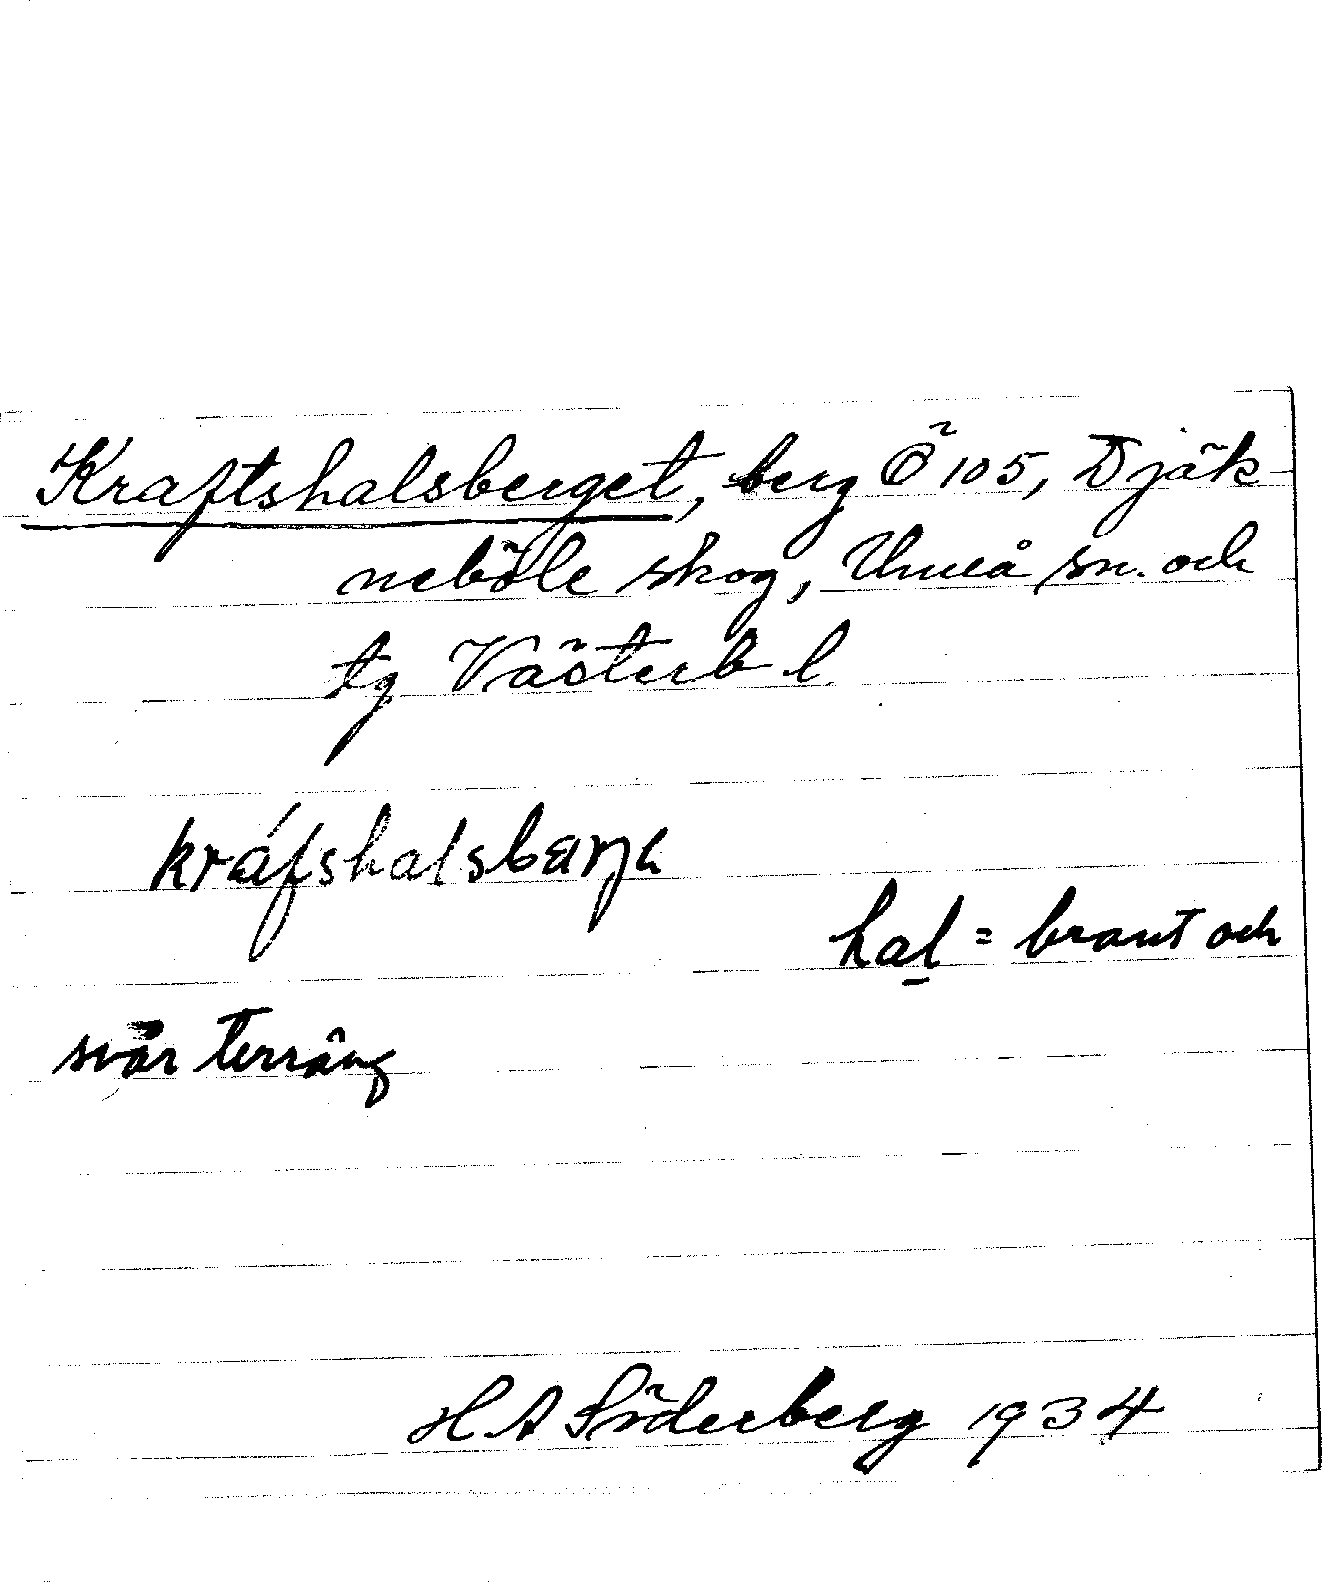 Kraftshalsberget, berg Ö 105, Djäk
neböle skog, Umeå sn. och
tg Västerb l
kráfshalsbarja
hal = brant och
svår terräng
H A Söderberg 1934